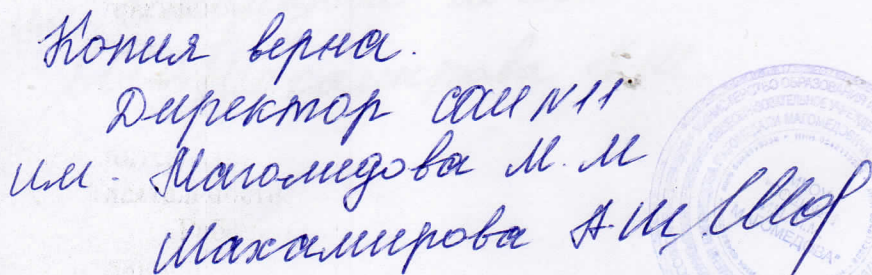 Копия верна.
Директор сош №11
им. Магомедова М.М
Махамирова А.Ш.